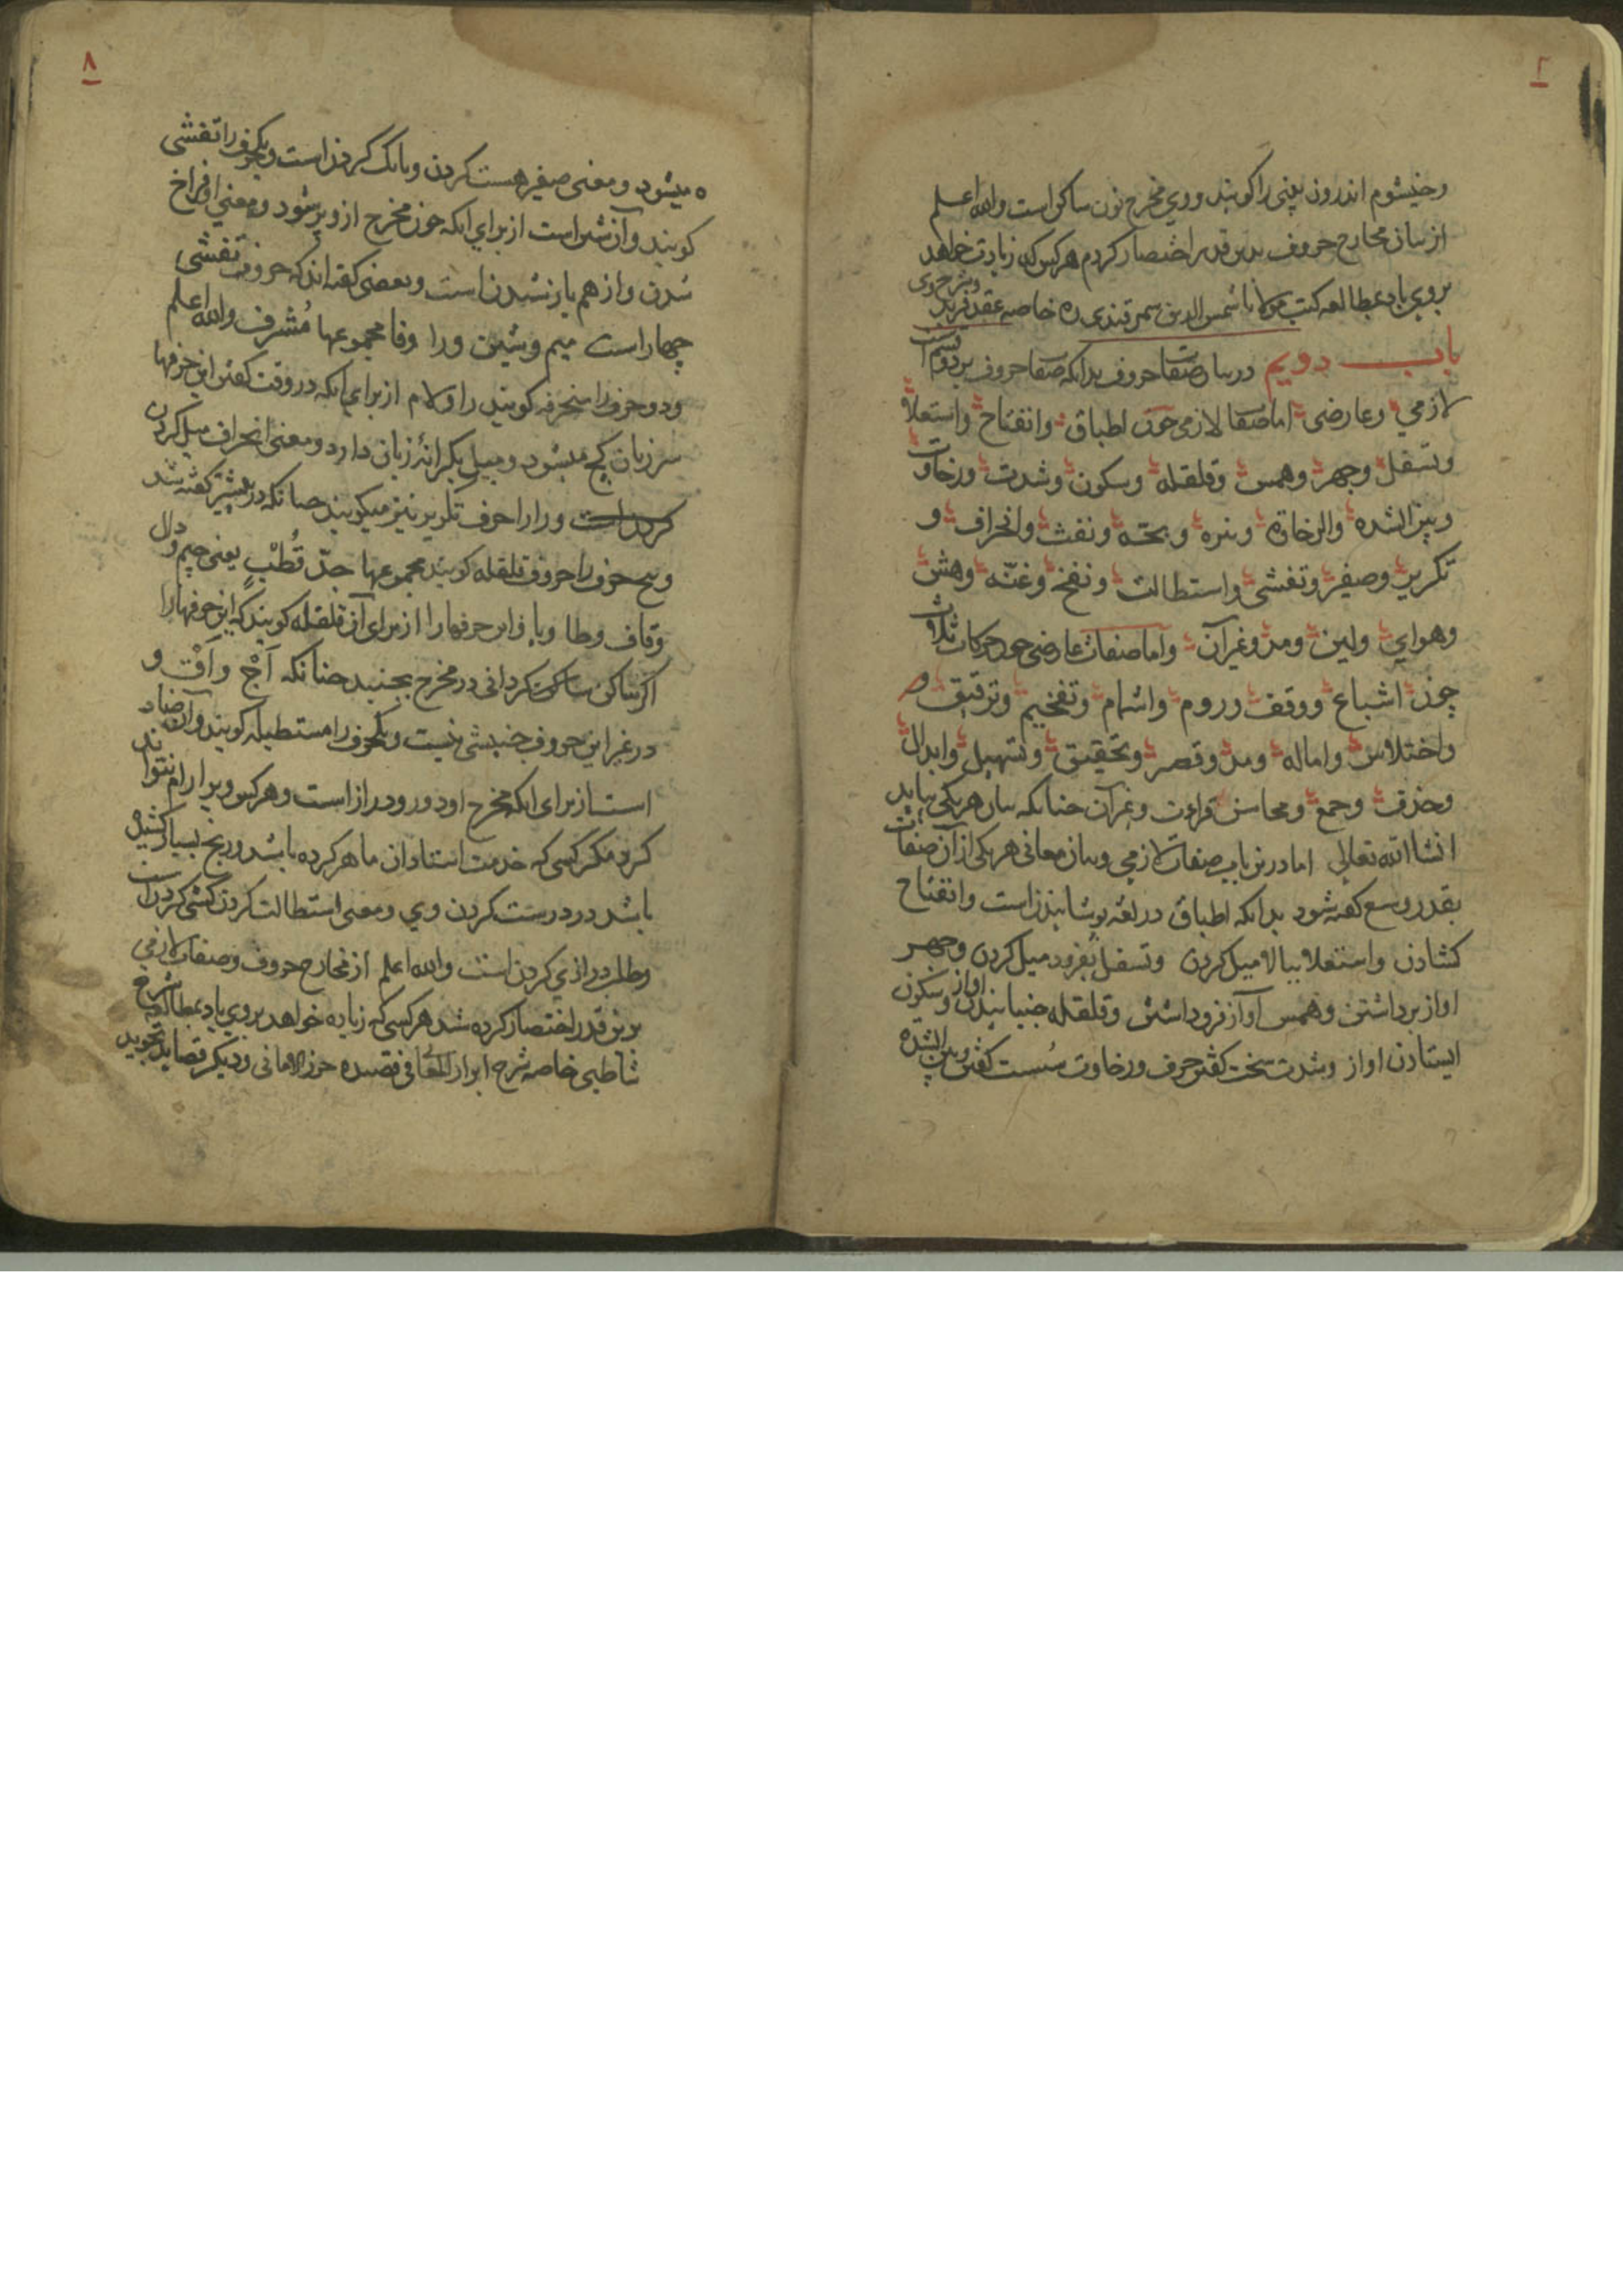 وخیشوم اندرون بینی را کویند ووی مخرج نون ساکن است والله اعلم
از بیان مخارج حروف بدین قدر اختصار کردم هر کس که زیادت خواهد
بروی باد بمطالعه کتب مولانا شمس الدین سمرقندی ره خاصه عقد فرید وشرح وی
باب دویم در بیان صفات حروف بدانکه صفات حروف بر دو قسم است
لازمی وعارضی اما صفات لازمی چون اطباق وانفتاح واستعلا
وتسفل وجهر وهمس وقلقله وسکون وشدت ورخاوت
وبین الشده والرخاوة ونبره وبحّه ونفث وانحراف و
تکریر وصفیر وتفشی واستطالت ونفخ وغنّه وهش
وهوایی ولین ومد وغیر آن واما صفات عارضی چون حرکات ثلاث
چون اشباع ووقف وروم واشمام وتفخیم وترقیق و
واختلاس واماله ومد وقصر وتحقیق وتسهیل وابدال
وحذف وجمع ومحاسن قراءت وغیر آن چنانکه بیان هر یکی بیاید
انشاالله تعالی اما درین باب صفات لازمی وبیان معانی هر یکی از آن صفات
بقدر وسع کفته شود بدانکه اطباق در لغه پوشانیدن است وانفتاح
کشادن واستعلا ببالا میل کردن وتسفل بفرود میل کردن وجهر
اواز برداشتن وهمس آواز فرو داشتن وقلقله جنبانیدن اواز وسکون
ایستادن اواز وشدت سخت کفتن حرف ورخاوت سُست کفتن وبین الشده
۸
میشود ومعنی صفیر هست کردن وبانک کردن است ویکحرف را تفشی
کویند وآن شین است از برای آنکه چون مخرج ازو پر شود ومعنی او فراخ
شدن واز هم باز شدن است وبعضی کفته اند که حروف تفشی
چهار است میم وشین ورا وفا مجموعها مُشرف والله اعلم
ودو حرف را منحرفه کویند را ولام از برای آنکه در وقت کفتن این حرفها
سر زبان کج میشود ومیل بکرانۀ زبان دارد ومعنی انحراف میل کردن
کردن است ورا را حرف تکریر نیز میکویند چنانکه در پیشتر کفته شد
وپنج حرف را حروف قلقله کویند مجموعها جدّ قُطْبٍ یعنی جیم ودال
وقاف وطا وبا واین حرفها را از برای آن قلقله کویند که این حرفها را
اکر ساکن ساکن کردانی در مخرج بجنبد چنانکه آجْ وآقْ و
در غیر این حروف جنبشی نیست ویکحرف را مستطیله کویند وآن ضاد
است از برای آنکه مخرج او دور ودراز است وهر کس ویرا رام نتواند
کرد مکر کسی که خدمت استادان ماهر کرده باشد ورنج بسیار کشیده
باشد در درست کردن وی ومعنی استطالت کردن کشی کردن است
وطلب درازی کردن است والله اعلم از مخارج حروف وصفات لازمی
برین قدر اختصار کرده شد هر کسی که زیاده خواهد بروی باد بمطالعه شرح
شاطبی خاصه شرح ابراز المعانی فی قصیده حرز الامانی ودیکر قصاید تجوید